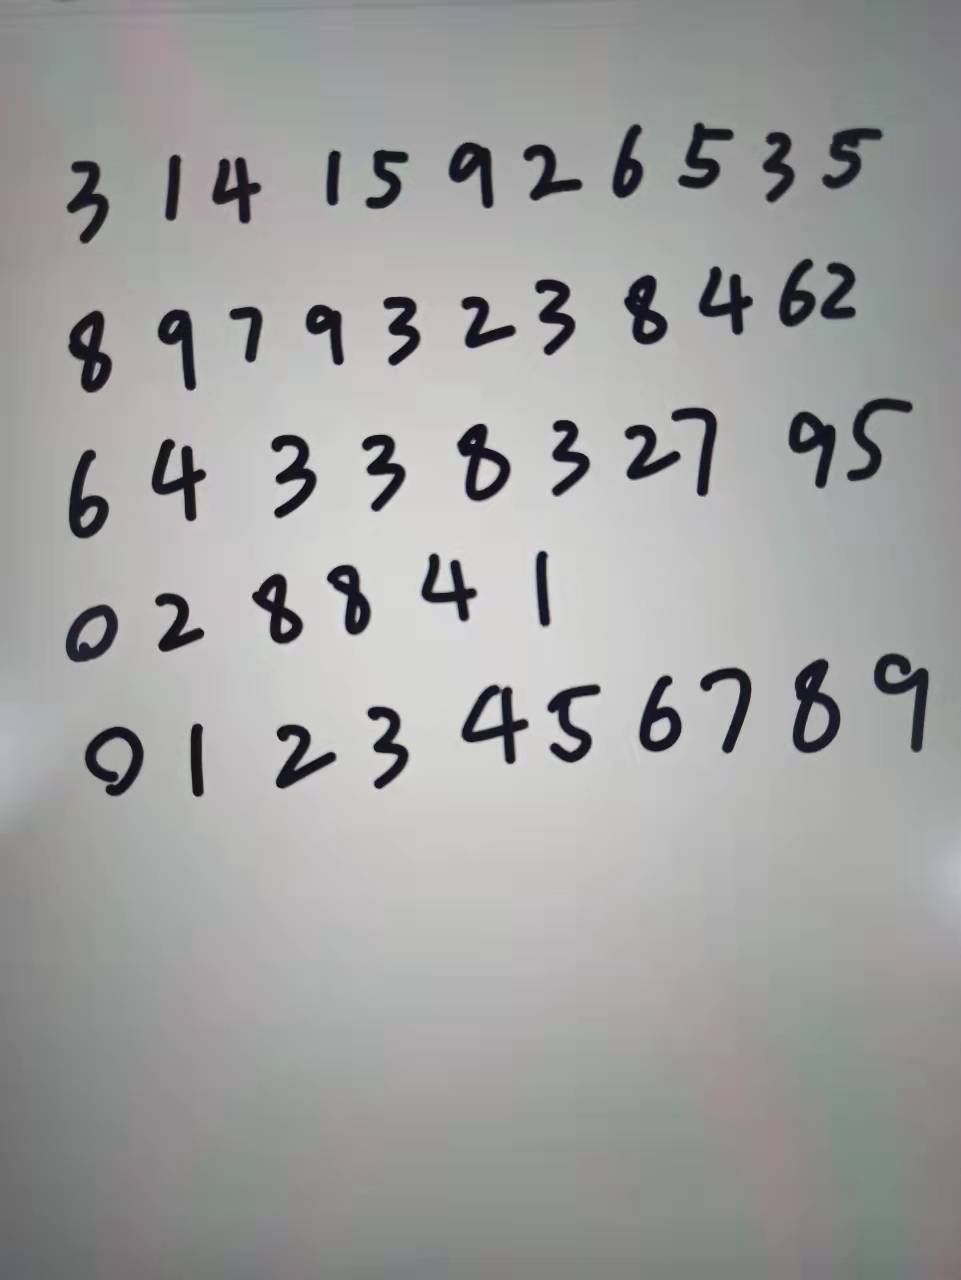 3 1 4 1 5 9 2 6 5 3 5
8 9 7 9 3 2 3 8 4 6 2
6 4 3 3 8 3 2 7 9 5
0 2 8 8 4 1
0 1 2 3 4 5 6 7 8 9